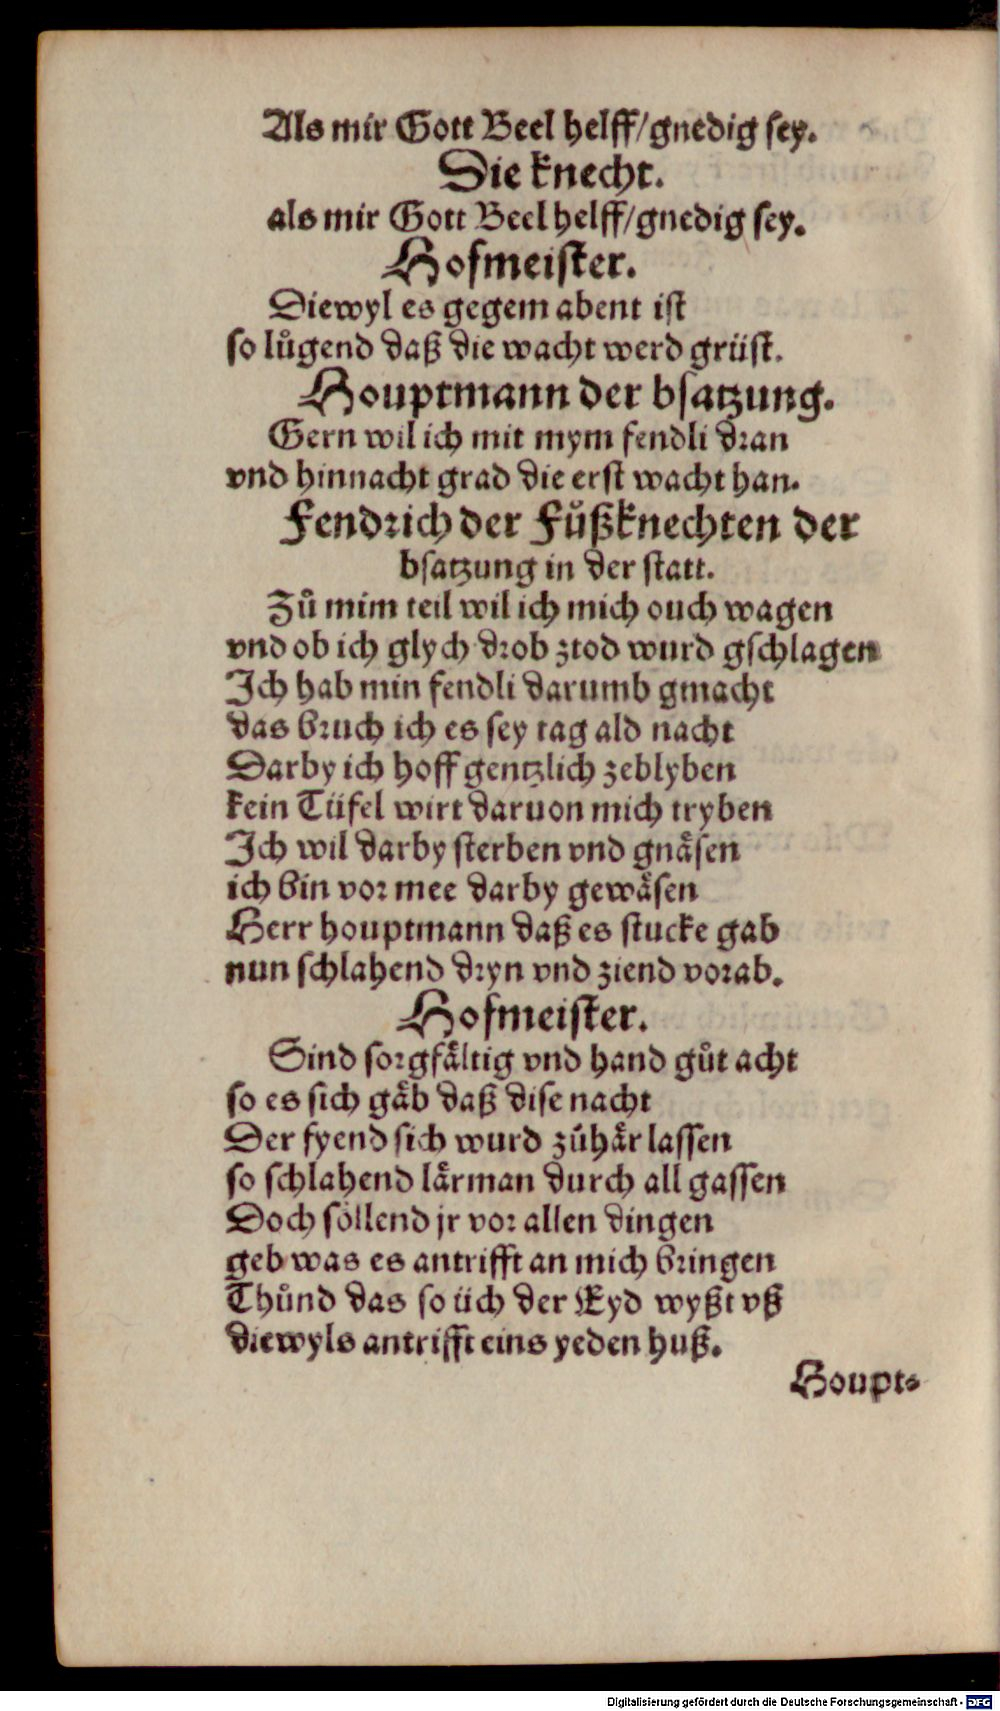 Als mir Gott Beel helff/gnedig sey.
Die knecht.
als mir Gott Beel helff/gnedig sey.
Hofmeister.
Diewyl es gegem abent ist
so lůgend daß die wacht werd grüst.
Houptmann der bsatzung.
Gern wil ich mit mym fendli dran
vnd hinnacht grad die erst wacht han.
Fendrich der Fůßknechten der
bsatzung in der statt.
Zů mim teil wil ich mich ouch wagen
vnd ob ich glych drob ztod wurd gschlagen
Ich hab min fendli darumb gmacht
das bruch ich es sey tag ald nacht
Darby ich hoff gentzlich zeblyben
kein Tüfel wirt daruon mich tryben
Ich wil darby sterben vnd gnäsen
ich bin vor mee darby gewäsen
Herr houptmann daß es stucke gab
nun schlahend dryn vnd ziend vorab.
Hofmeister.
Sind sorgfältig vnd hand gůt acht
so es sich gäb daß dise nacht
Der fyend sich wurd zůhär lassen
so schlahend lärman durch all gassen
Doch söllend jr vor allen dingen
geb was es antrifft an mich bringen
Thůnd das so üch der Eyd wyßt vß
diewyls antrifft eins yeden huß.
Houpt-
Digitalisierung gefördert durch die Deutsche Forschungsgemeinschaft - DFG